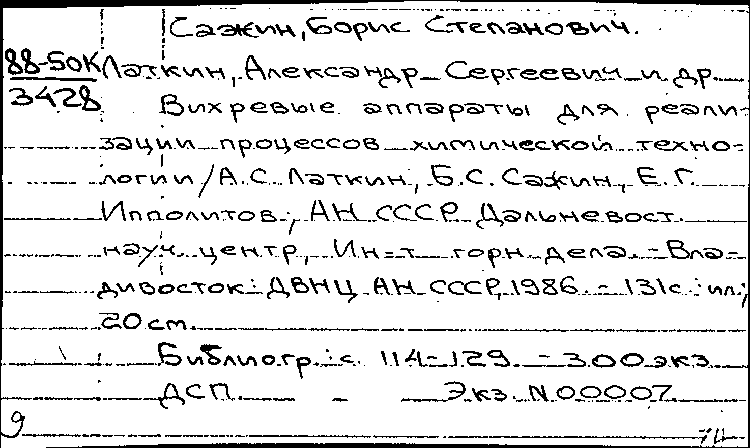 Сажин, Борис Степанович.
88-50К Латкин, Александр Сергеевич и др.
3428 Вихревые аппараты для реали-
зации процессов химической техно-
логии / А.С. Латкин, Б.С. Сажин, Е.Г.
Ипполитов; АН СССР. Дальневост.
науч. центр, Ин-т горн. дела. - Вла-
дивосток: ДВНЦ АН СССР, 1986. - 131с.: ил.;
20 см.
Библиогр.: с. 114-129. - 300 экз.
ДСП. - Экз. N 00007.
9